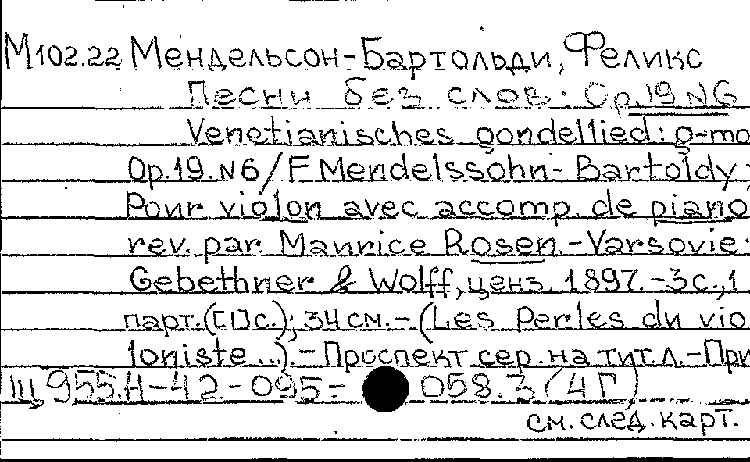 М102.22 Мендельсон-Бартольди, Феликс
Песни без слов: Op.19 N6
Venetianisches gondellied: g-mo
Op.19.N6/F. Mendelssohn-Bartoldy;
Pour violon avec accomp. de piano,
rev. par Maurice Rosen.-Varsovie:
Gebethner & Wolff, ценз. 1897.-3с.,1
парт.([1]с.); 34см.-(Les Perles du vio
loniste...).-Проспект сер. на тит.л.-При
Щ 955.4-42-095- 058.3(4Г)
см. след. карт.